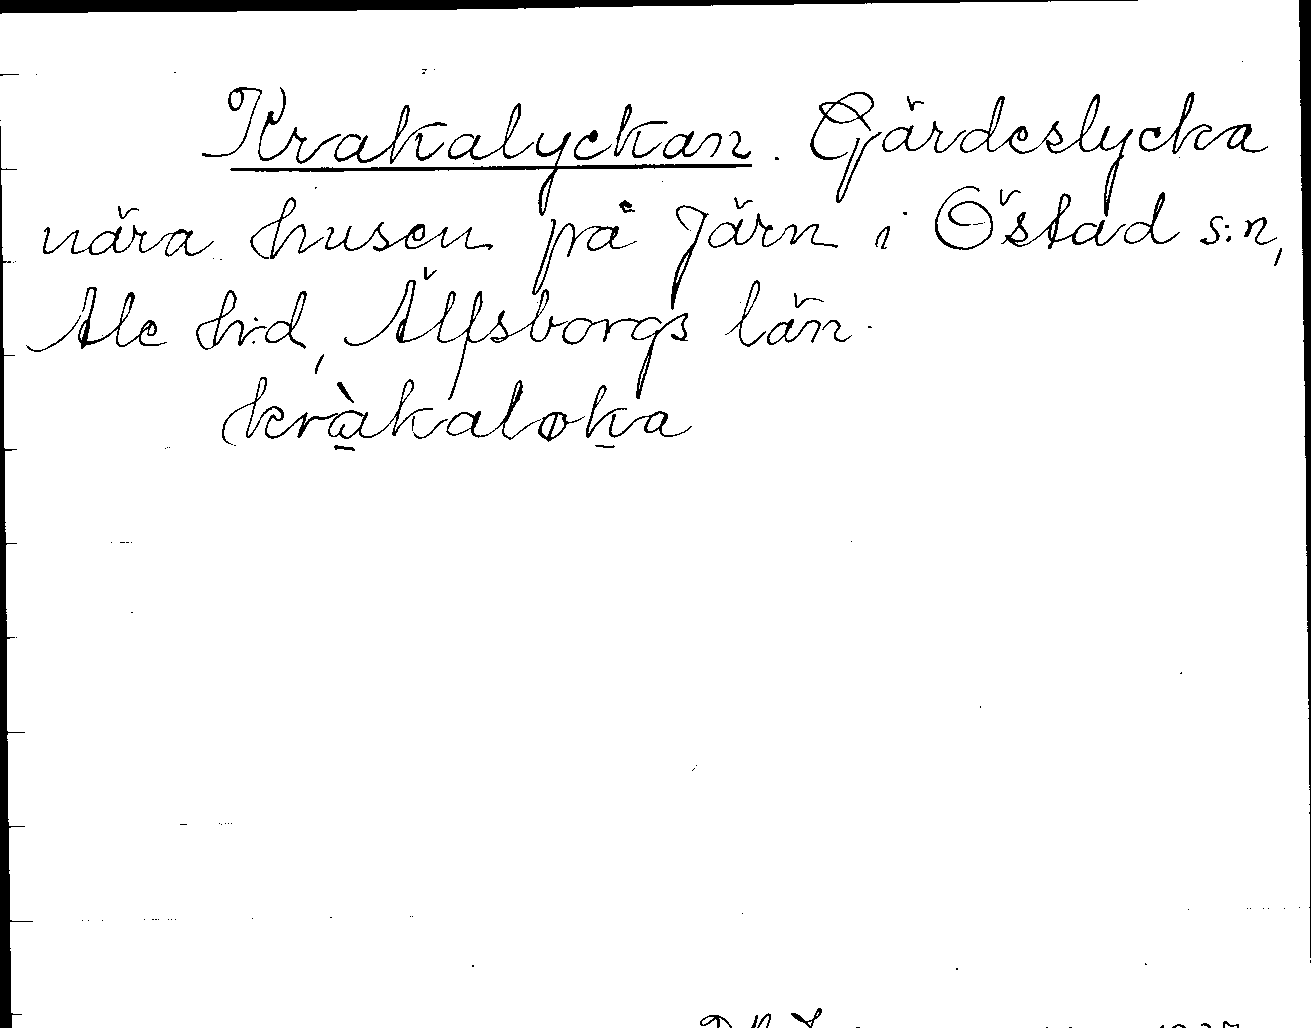 Krakalyckan. Gärdeslycka
nära husen på Järn i Östad s:n,
Ale h:d, Älfsborgs län.
kràkaløka